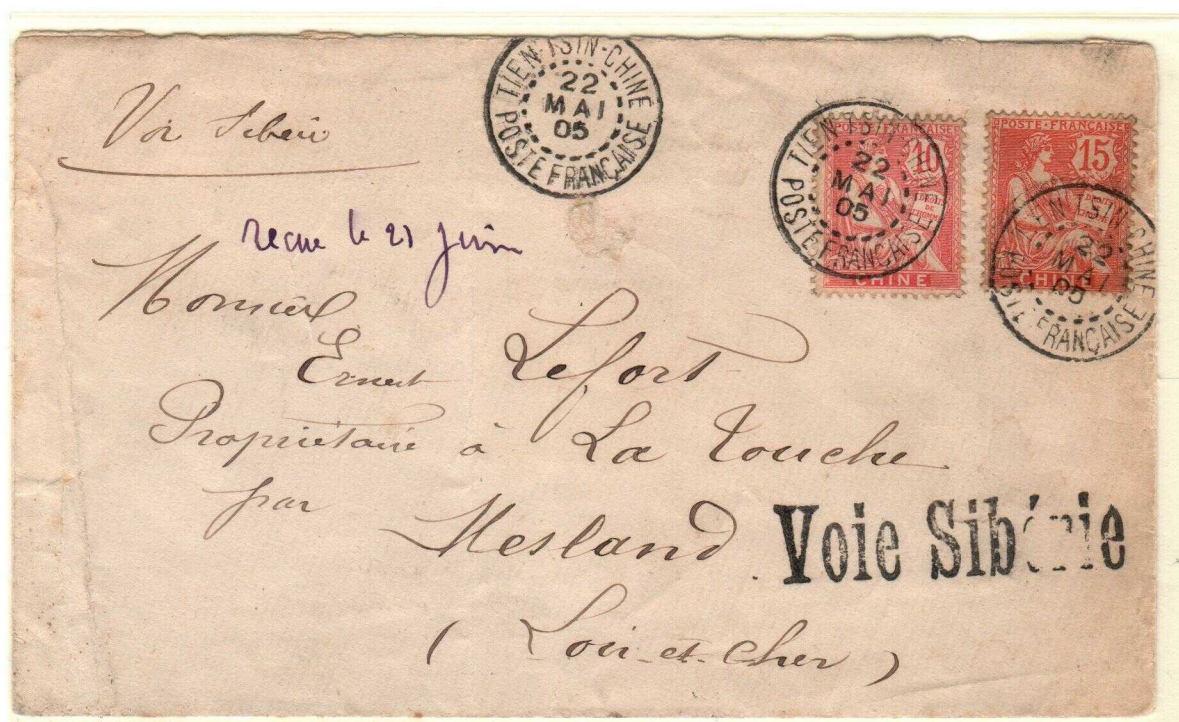 TIEN-TSIN-CHINE
22
MAI
05
POSTE FRANÇAISE
TIEN-TSIN-CHINE
22
MAI
05
POSTE FRANÇAISE
POSTE FRANÇAISE
10
DROITS
DE
L'HOMME
CHINE
POSTE FRANÇAISE
15
DROITS
DE
L'HOMME
CHINE
TIEN-TSIN-CHINE
22
MAI
05
POSTE FRANÇAISE
Voie Sibérie
recue le 21 Juin
Monsieur
Ernest Lefort
Propriétaire à La Touche
par Mesland
Voie Sibérie
(Loir-et-Cher)